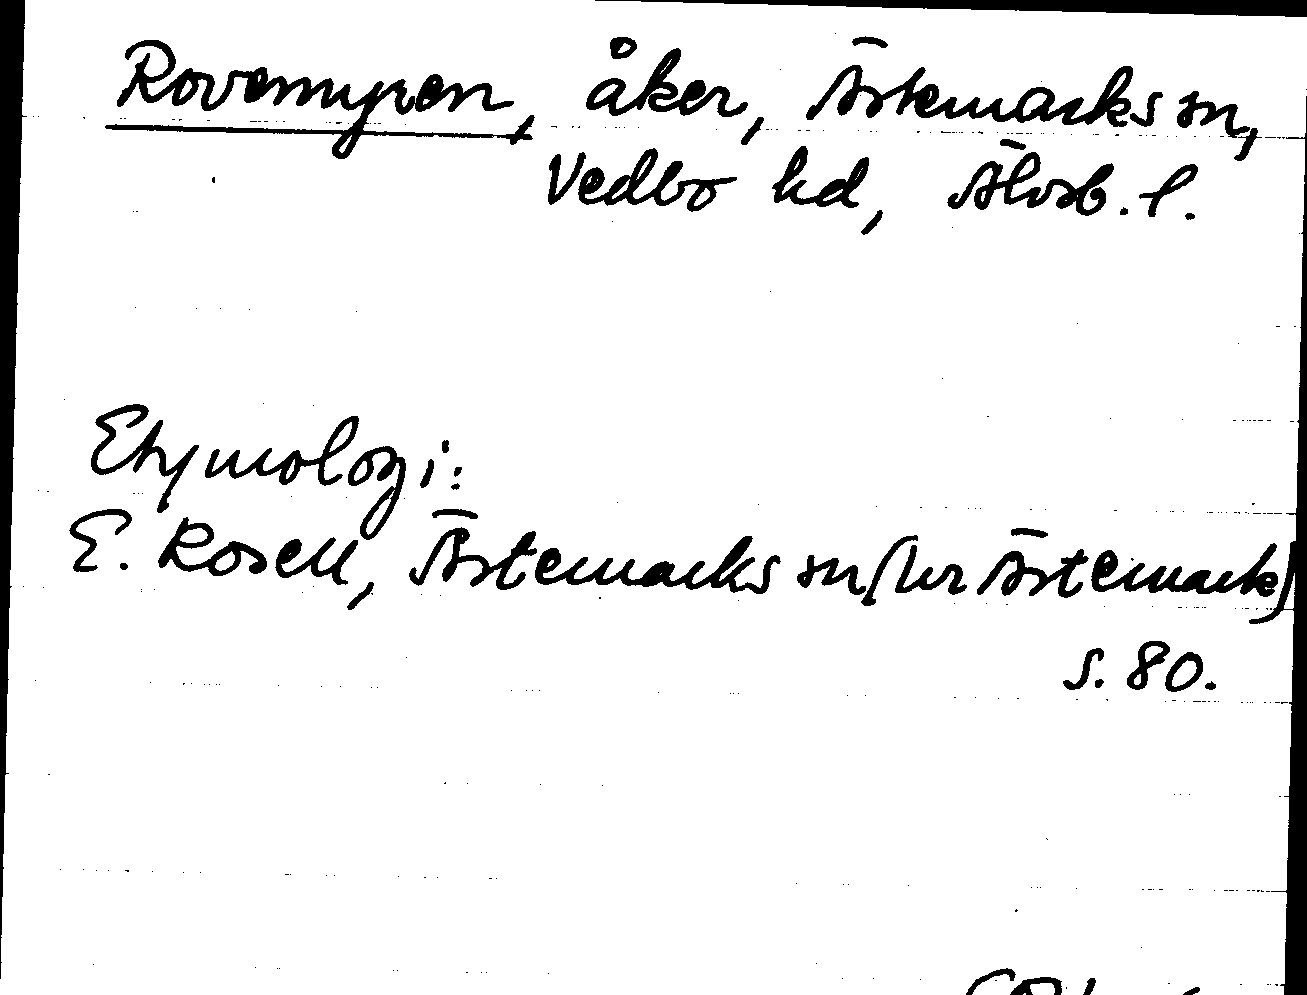 Rovemyren, åker, Ärtemarks sn,
Vedbo hd, Älvsb. l.
Etymologi:
E. Rosell, Ärtemarks sn (hr Ärtemark)
s. 80.